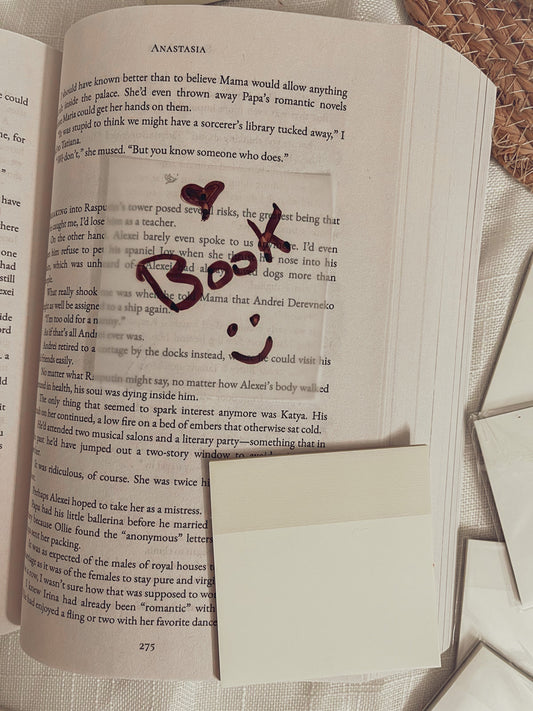 ANASTASIA
should have known better than to believe Mama would allow anything
inside the palace. She'd even thrown away Papa's romantic novels
Maria could get her hands on them.
was stupid to think we might have a sorcerer's library tucked away," I
to Tatiana.
don't," she mused. "But you know someone who does."
into Rasputin's tower posed several risks, the greatest being that
caught me, I'd lose him as a teacher.
On the other hand, Alexei barely even spoke to us anymore. I'd even
him refuse to pet his spaniel Joy when she thrust her nose into his
which was unheard of. Alexei had always loved dogs more than
What really shook me was when he told Mama that Andrei Derevneko
as well be assigned to a ship again.
"I'm too old for a nanny."
As if that's all Andrei ever was.
Andrei retired to a cottage by the docks instead, where he could visit his
friends easily.
No matter what Rasputin might say, no matter how Alexei's body walked
in health, his soul was dying inside him.
The only thing that seemed to spark interest anymore was Katya. His
on her continued, a low fire on a bed of embers that otherwise sat cold.
He'd attended two musical salons and a literary party—something that in
past he'd have jumped out a two-story window to avoid
It was ridiculous, of course. She was twice hi
Perhaps Alexei hoped to take her as a mistress.
Papa had his little ballerina before he married
because Ollie found the "anonymous" letters
sent her packing.
It was as expected of the males of royal houses t
as it was of the females to stay pure and virgi
now, I wasn't sure how that was supposed to wo
I knew Irina had already been "romantic" with
had enjoyed a fling or two with her favorite dance
275
BOOK
e could
ne, for
have
here
had
still
exei
ide
ord
a